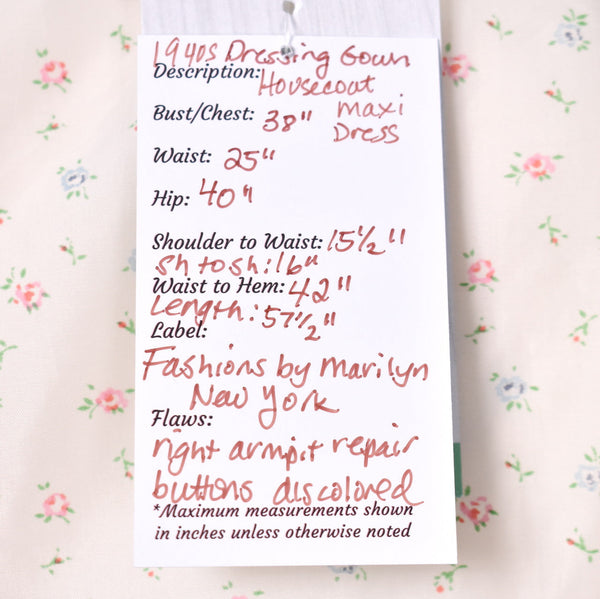 1940s Dressing Gown
Description: Housecoat
Maxi
Bust/Chest: 38"
Dress
Waist: 25"
Hip: 40"
Shoulder to Waist: 15½"
Sh to sh: 16"
Waist to Hem: 42"
Length: 57½"
Label:
Fashions by Marilyn
New York
Flaws:
right armpit repair
buttons discolored
*Maximum measurements shown
in inches unless otherwise noted